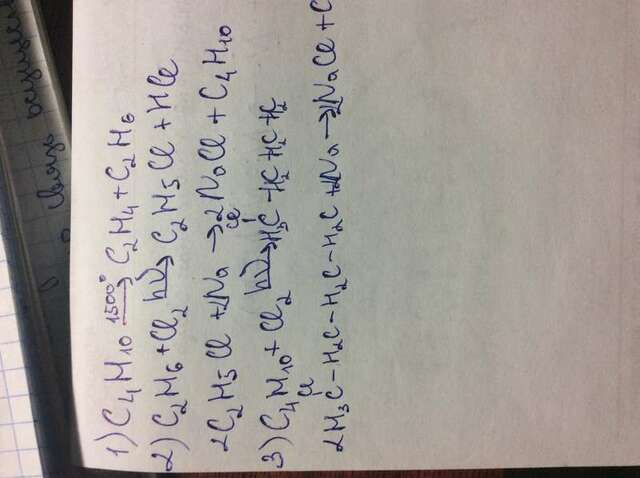 связь осущес
1) C₄H₁₀ 1500° → C₂H₄ + C₂H₆
2) C₂H₆ + Cl₂ hν → C₂H₅Cl + HCl
2C₂H₅Cl + 2Na → 2NaCl + C₄H₁₀
Cl
3) C₄H₁₀ + Cl₂ hν → H₃C - H₂C - H₂C - H₂C
Cl
2H₃C - H₂C - H₂C - H₂C + 2Na → 2NaCl + C